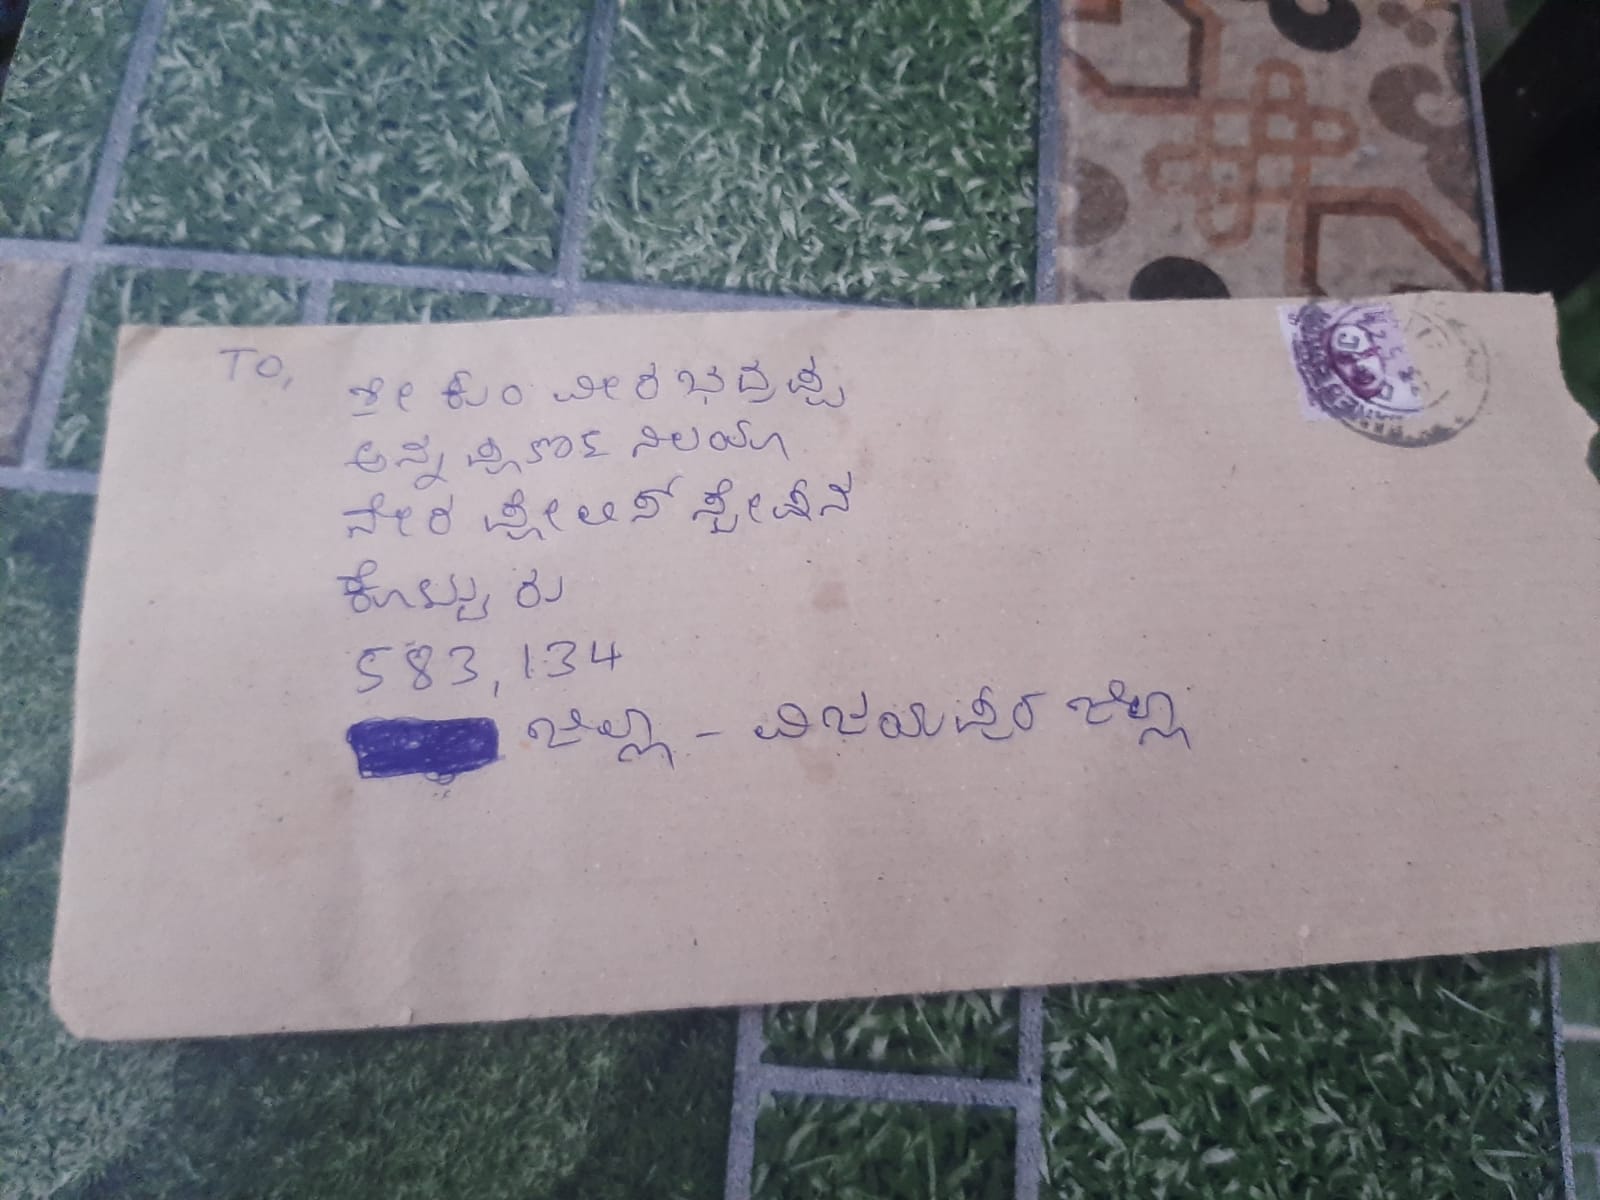 TO,
ಶ್ರೀ ಕುಂ ವೀರಭದ್ರಪ್ಪ
ಅನ್ನ ಪ್ರಕಾಶ ನಿಲಯ
ನೇರ ಪೋಲಿಸ್ ಸ್ಟೇಷನ
ಕೊಟ್ಟುರು
583,134
ಜಿಲ್ಲಾ - ವಿಜಯಪುರ ಜಿಲ್ಲಾ